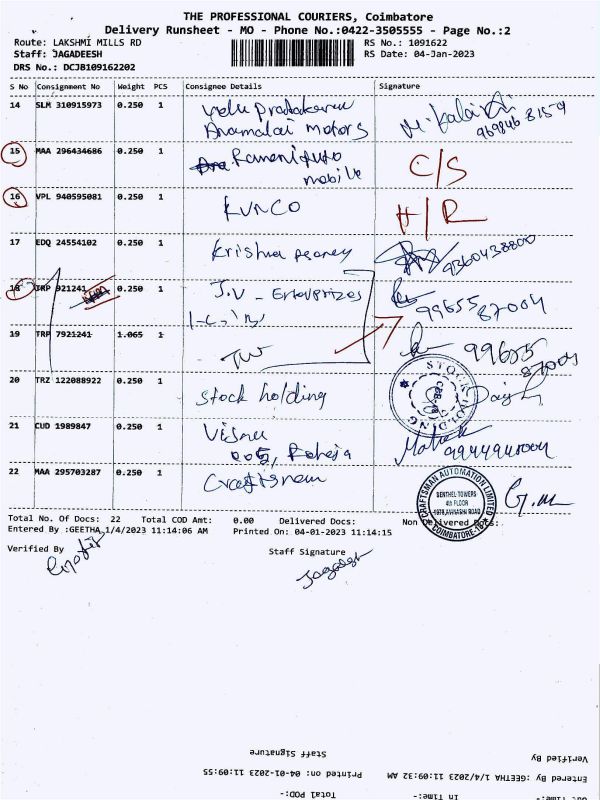 THE PROFESSIONAL COURIERS, Coimbatore
Delivery Runsheet - MO - Phone No.:0422-3505555 - Page No.:2
Route: LAKSHMI MILLS RD RS No.: 1091622
Staff: JAGADEESH RS Date: 04-Jan-2023
DRS No.: DCJB109162202
S No Consignment No Weight PCS Consignee Details Signature
14 SLM 310915973 0.250 1
Anamalai Motors
15 MAA 296434686 0.250 1 C/S
mobile
16 VPL 940595081 0.250 1 KVNCO H/R
17 EDQ 24554102 0.250 1 Krishna 9360438800
18 TRP 921241 0.250 1 J.V - Enterprizes 99655 87004
19 TRP 7921241 1.065 1 99655 87004
20 TRZ 122088922 0.250 1 Stock holding
STOCK HOLDING
21 CUD 1989847 0.250 1
Raheja
22 MAA 295703287 0.250 1
CRAFTSMAN AUTOMATION LIMITED
SENTHEL TOWERS
4th FLOOR
COIMBATORE-18
Total No. Of Docs: 22 Total COD Amt: 0.00 Delivered Docs: Non Delivered Docs:
Entered By :GEETHA 1/4/2023 11:14:06 AM Printed On: 04-01-2023 11:14:15
Verified By Staff Signature
Jagadesh
Staff Signature Verified By
Printed on: 04-01-2023 11:09:55 Entered By :GEETHA 1/4/2023 11:09:32 AM
Total POD: In Time: Out Time: